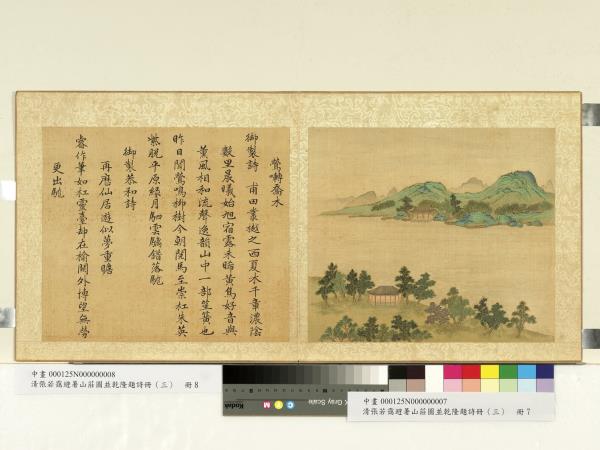 鶯囀喬木
御製詩 甫田叢樾之西夏木千章濃陰
數里晨曦始旭宿露未晞黃鳥好音與
薰風相和流聲逸韻山中一部笙簧也
昨日聞鶯鳴柳樹今朝閱馬至崇杠朱英
紫脫平原綠月駟雲驕錯落駹
御製恭和詩
再歷仙居遊似夢重瞻
睿作筆如杠靈臺却在榆關外博望無勞
更出駹
中畫 000125N000000008
清張若靄避暑山莊圖並乾隆題詩冊（三） 冊 8
Kodak
Gray Scale
C
M
中畫 000125N000000007
清張若靄避暑山莊圖並乾隆題詩冊（三） 冊 7